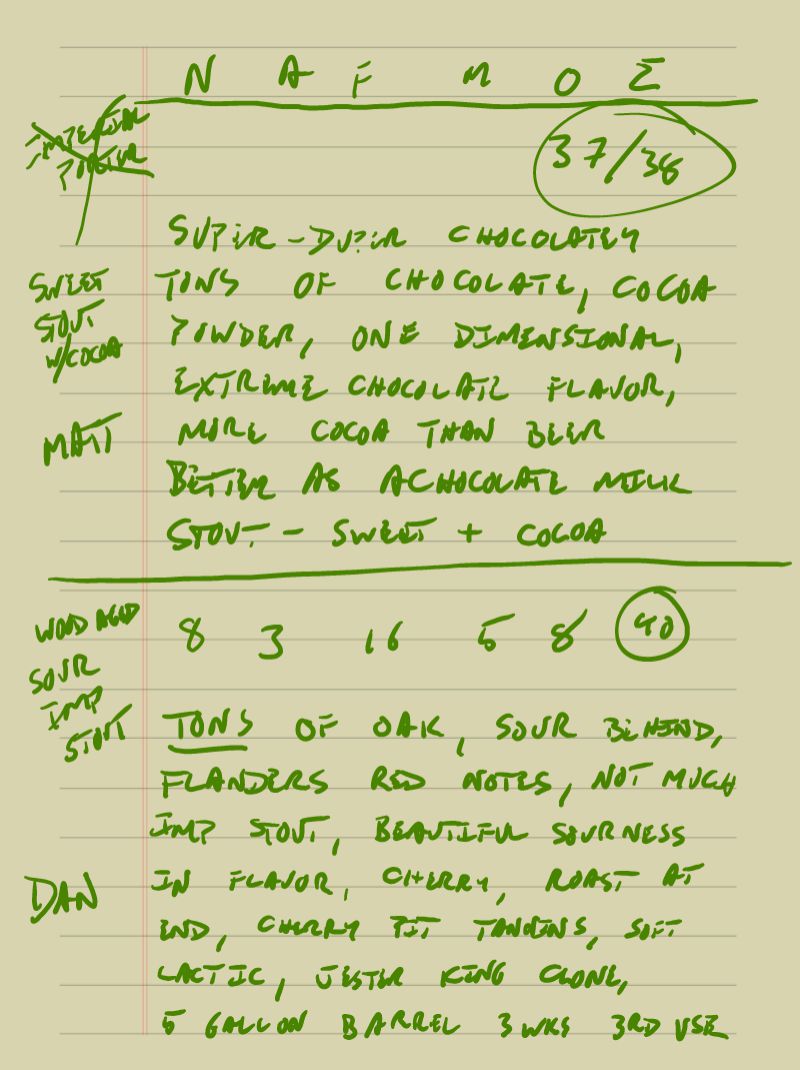 N A F M O E
IMPERIAL
PORTER
37/38
SUPER-DUPER CHOCOLATEY
SWEET
STOUT
W/COCOA
TONS OF CHOCOLATE, COCOA
POWDER, ONE DIMENSIONAL,
EXTREME CHOCOLATE FLAVOR,
MATT
MORE COCOA THAN BEER
BETTER AS A CHOCOLATE MILK
STOUT - SWEET + COCOA
WOOD AGED
SOUR
IMP
STOUT
8 3 16 5 8 40
TONS OF OAK, SOUR BEHIND,
FLANDERS RED NOTES, NOT MUCH
IMP STOUT, BEAUTIFUL SOURNESS
DAN
IN FLAVOR, CHERRY, ROAST AT
END, CHERRY PIT TANNINS, SOFT
LACTIC, JESTER KING CLONE,
5 GALLON BARREL 3 WKS 3RD USE